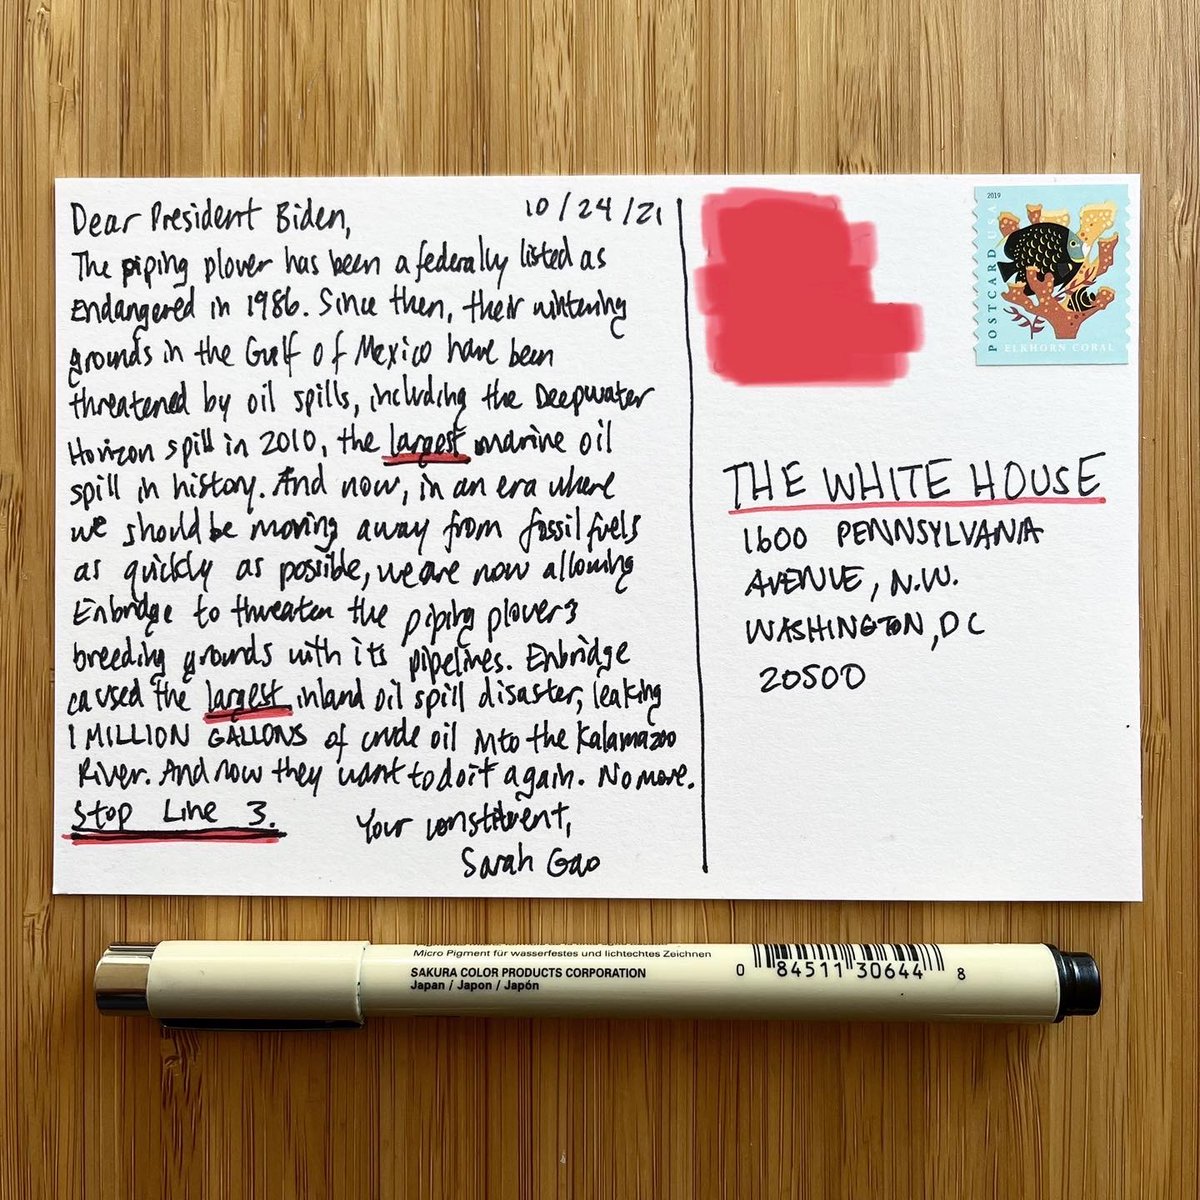 Dear President Biden,
10/24/21
The piping plover has been a federally listed as
Endangered in 1986. Since then, their wintering
grounds in the Gulf of Mexico have been
threatened by oil spills, including the Deepwater
Horizon spill in 2010, the largest marine oil
spill in history. And now, in an era where
we should be moving away from fossil fuels
as quickly as possible, we are now allowing
Enbridge to threaten the piping plovers
breeding grounds with its pipelines. Enbridge
caused the largest inland oil spill disaster, leaking
1 MILLION GALLONS of crude oil into the Kalamazoo
River. And now they want to do it again. No more.
Stop Line 3.
Your constituent,
Sarah Gao
2019
POSTCARD USA
ELKHORN CORAL
THE WHITE HOUSE
1600 PENNSYLVANIA
AVENUE, N.W.
WASHINGTON, DC
20500
Micro Pigment für wasserfestes und lichtechtes Zeichnen
SAKURA COLOR PRODUCTS CORPORATION
Japan / Japon / Japón
0 84511 30644 8